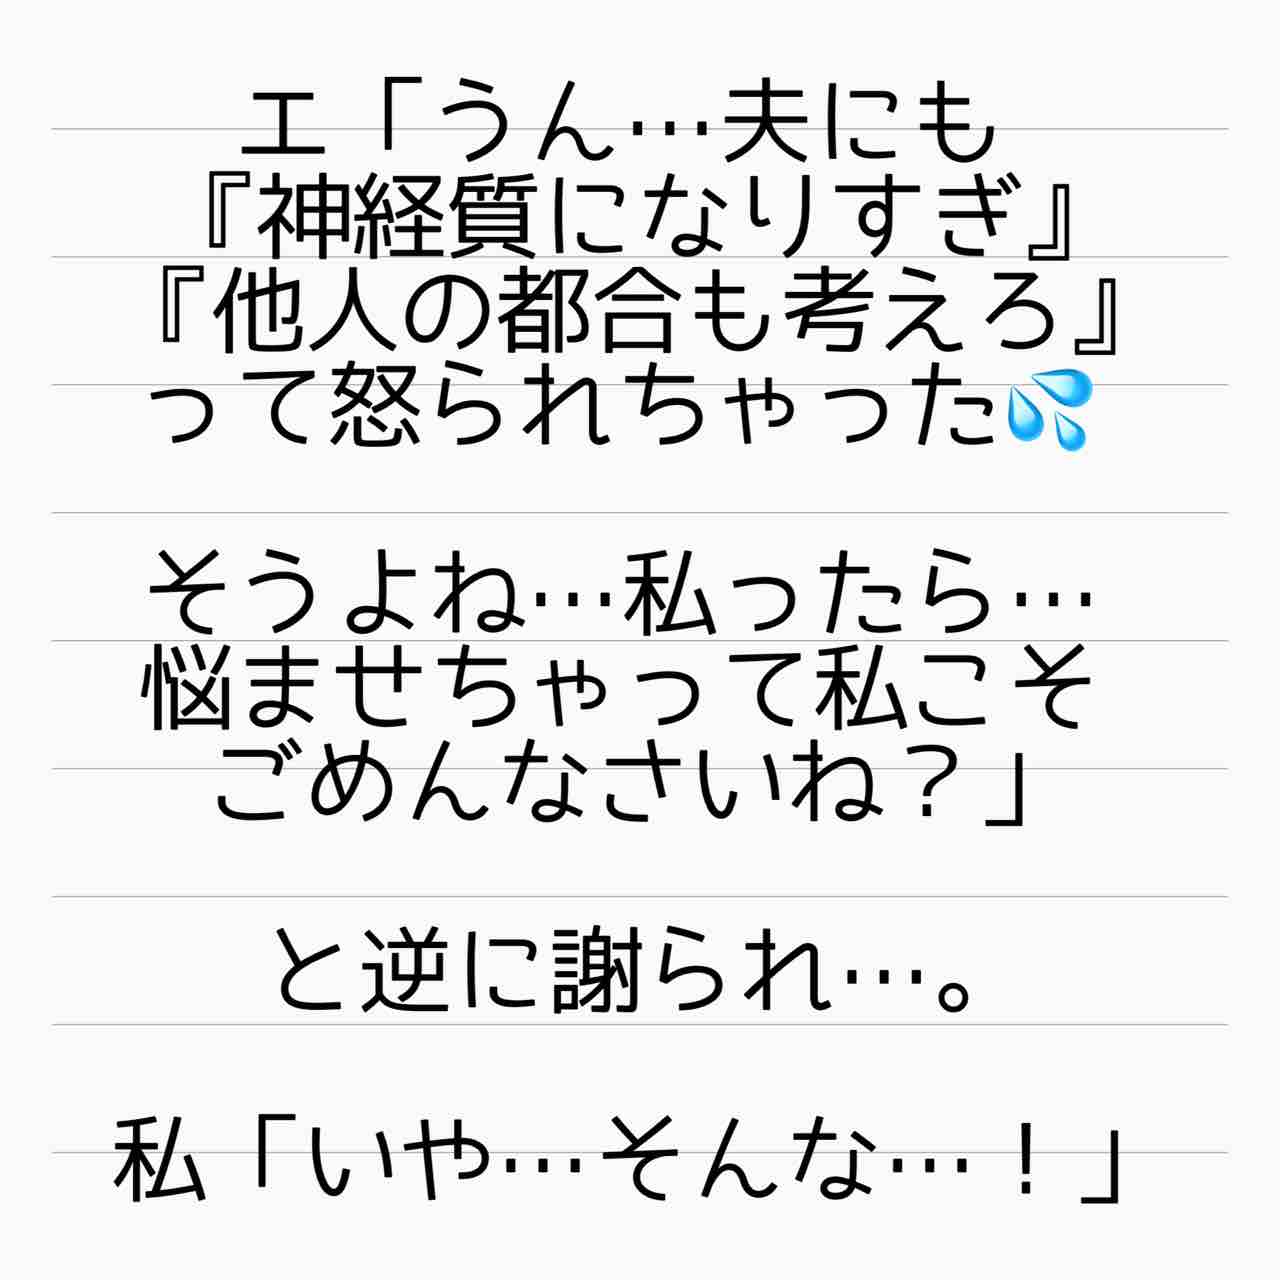 エ「うん…夫にも
『神経質になりすぎ』
『他人の都合も考えろ』
って怒られちゃった💦
そうよね…私ったら…
悩ませちゃって私こそ
ごめんなさいね？」
と逆に謝られ…。
私「いや…そんな…！」